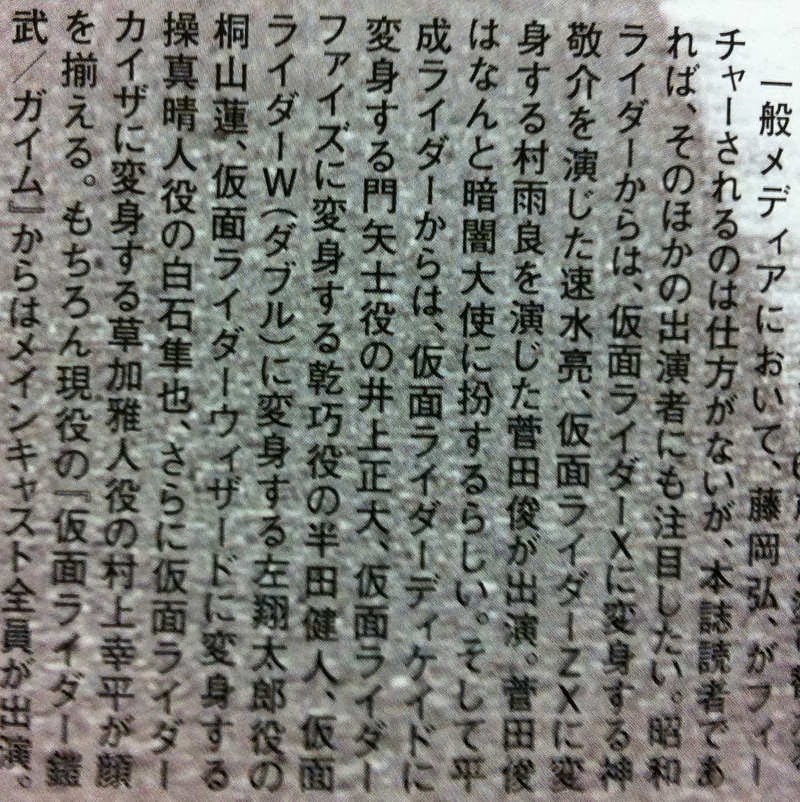 一般メディアにおいて、藤岡弘、がフィー
チャーされるのは仕方がないが、本誌読者であ
れば、そのほかの出演者にも注目したい。昭和
ライダーからは、仮面ライダーXに変身する神
敬介を演じた速水亮、仮面ライダーZXに変
身する村雨良を演じた菅田俊が出演。菅田俊
はなんと暗闇大使に扮するらしい。そして平
成ライダーからは、仮面ライダーディケイドに
変身する門矢士役の井上正大、仮面ライダー
ファイズに変身する乾巧役の半田健人、仮面
ライダーW（ダブル）に変身する左翔太郎役の
桐山蓮、仮面ライダーウィザードに変身する
操真晴人役の白石隼也、さらに仮面ライダー
カイザに変身する草加雅人役の村上幸平が顔
を揃える。もちろん現役の『仮面ライダー鎧
武／ガイム』からはメインキャスト全員が出演。